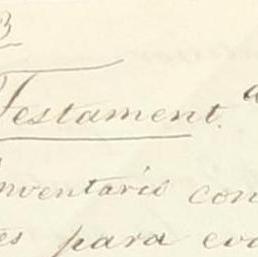 B
Testament.
Inventario con
es para eva